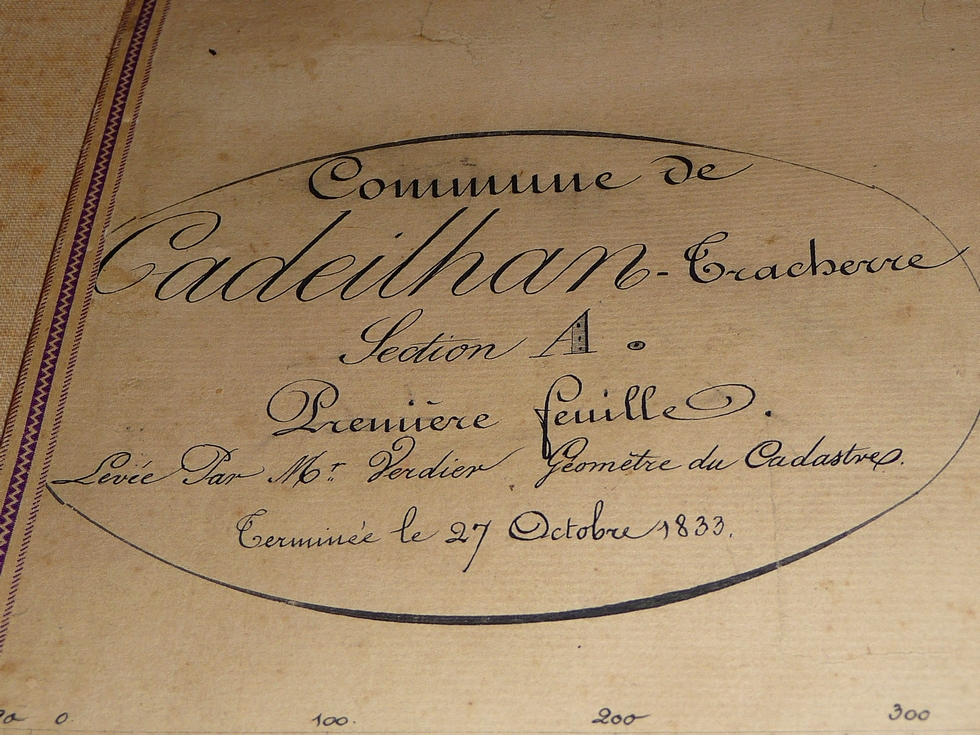 Commune de
Cadeilhan-Tracherre
Section A.
Première feuille.
Levée Par Mr. Verdier Géomètre du Cadastre.
Terminée le 27 Octobre 1833.
0 100. 200 300